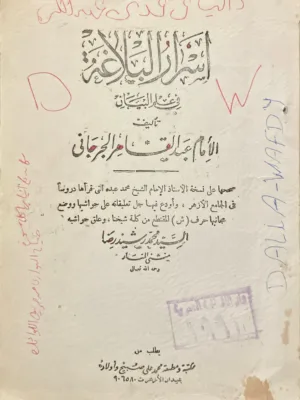 داليا
D
W
أسرار البلاغة
في علم البيان
تأليف
الإمام عبد القاهر الجرجاني
صححها على نسخة الاستاذ الإمام الشيخ محمد عبده التي قرأها دروساً
في الجامع الأزهر، وأودع فيها جل تعليقاته على حواشيها ووضع
بجانبها حرف (ش) المقتطع من كلمة شيخنا، وعلق حواشيه
السيد محمد رشيد رضا
منشئ المنار
رحمه الله تعالى
يطلب من
مكتبة ومطبعة محمد علي صبيح وأولاده
بميدان الأزهر ت ٩٠٦٥٨٠
DALIA-WAFDY